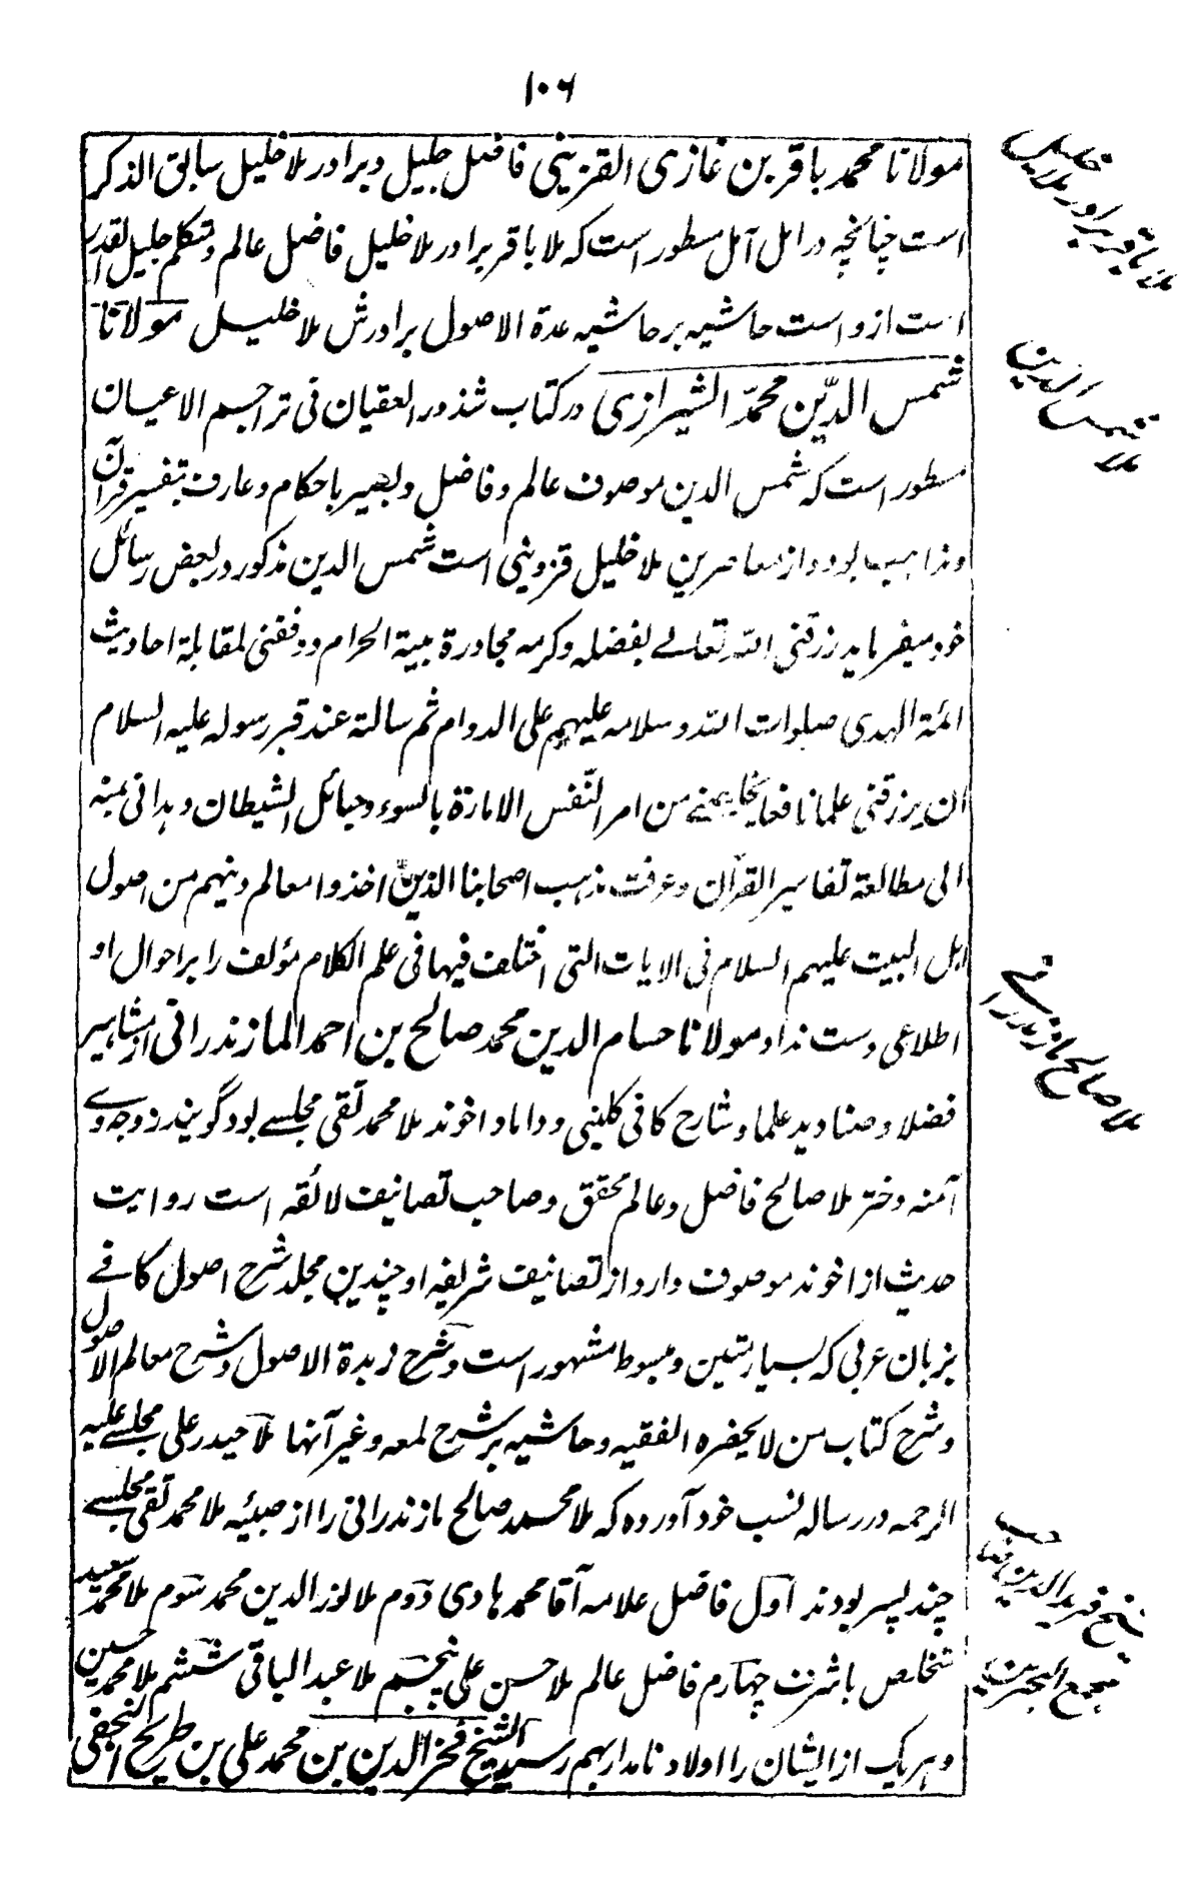 ۱۰۶
مولانا محمد باقر بن غازی القزینی فاضل جلیل و برادر ملا خلیل سابق الذکر
است چنانچه در امل آمل مسطور است که ملا باقر برادر ملا خلیل فاضل عالم و متکلم جلیل القدر
است ازو است حاشیه بر حاشیه عدة الاصول برادرش ملا خلیل مولانا
شمس الدّین محمّد الشیرازی در کتاب شذور العقیان فی تراجم الاعیان
مسطور است که شمس الدین موصوف عالم و فاضل و بصیر باحکام و عارف بتفسیر قرآن
و مذاهب بود و از معاصرین ملا خلیل قزوینی است شمس الدین مذکور در بعض رسائل
خود میفرماید رزقنی الله تعالے بفضله و کرمه مجاورة بیته الحرام و وفقنی لمقابلة احادیث
ائمة الهدی صلوات الله و سلامه علیهم علی الدوام ثم سالته عند قبر رسوله علیه السلام
ان یرزقنی علما نافعا من امر النّفس الامارة بالسوء و حبائل الشیطان و هدانی بمنه
الی مطالعة تفاسیر القرآن و عرفت مذهب اصحابنا الذین اخذوا معالم دینهم من اصول
اهل البیت علیهم السلام فی الایات التی اختلف فیها فی علم الکلام مؤلف را بر احوال او
اطلاعی دست نداد مولانا حسام الدین محمد صالح بن احمد المازندرانی از مشاهیر
فضلا و صنادید علما و شارح کافی کلینی و داماد اخوند ملا محمد تقی مجلسے بود گویند زوجه وے
آمنه دختر ملا صالح فاضل و عالم محقق و صاحب تصانیف لائقه است روایت
حدیث از اخوند موصوف دارد از تصانیف شریفه او چندین مجلد شرح اصول کافے
بزبان عربی که بسیار متین و مبسوط مشهور است و شرح زبدة الاصول و شرح معالم الاصول
و شرح کتاب من لا یحضره الفقیه و حاشیه بر شرح لمعه و غیر آنها ملا حیدر علی مجلسے علیه
الرحمه در رساله نسب خود آورده که ملا محمد صالح مازندرانی را از صبیّه ملا محمد تقی مجلسے
چند پسر بودند اول فاضل علامه آقا محمد هادی دوم ملا نور الدین محمد سوم ملا محمد سعید
متخلص باشرف چهارم فاضل عالم ملا حسن علی پنجم ملا عبد الباقی ششم ملا محمد حسین
و هر یک از ایشان را اولاد نامدار بهم رسید الشیخ فخر الدین بن محمد علی بن طریح النجفی
ملا باقر برادر ملا خلیل
ملا شمس الدین
ملا صالح مازندرانے
شیخ فخر الدین صاحب
مجمع البحرین